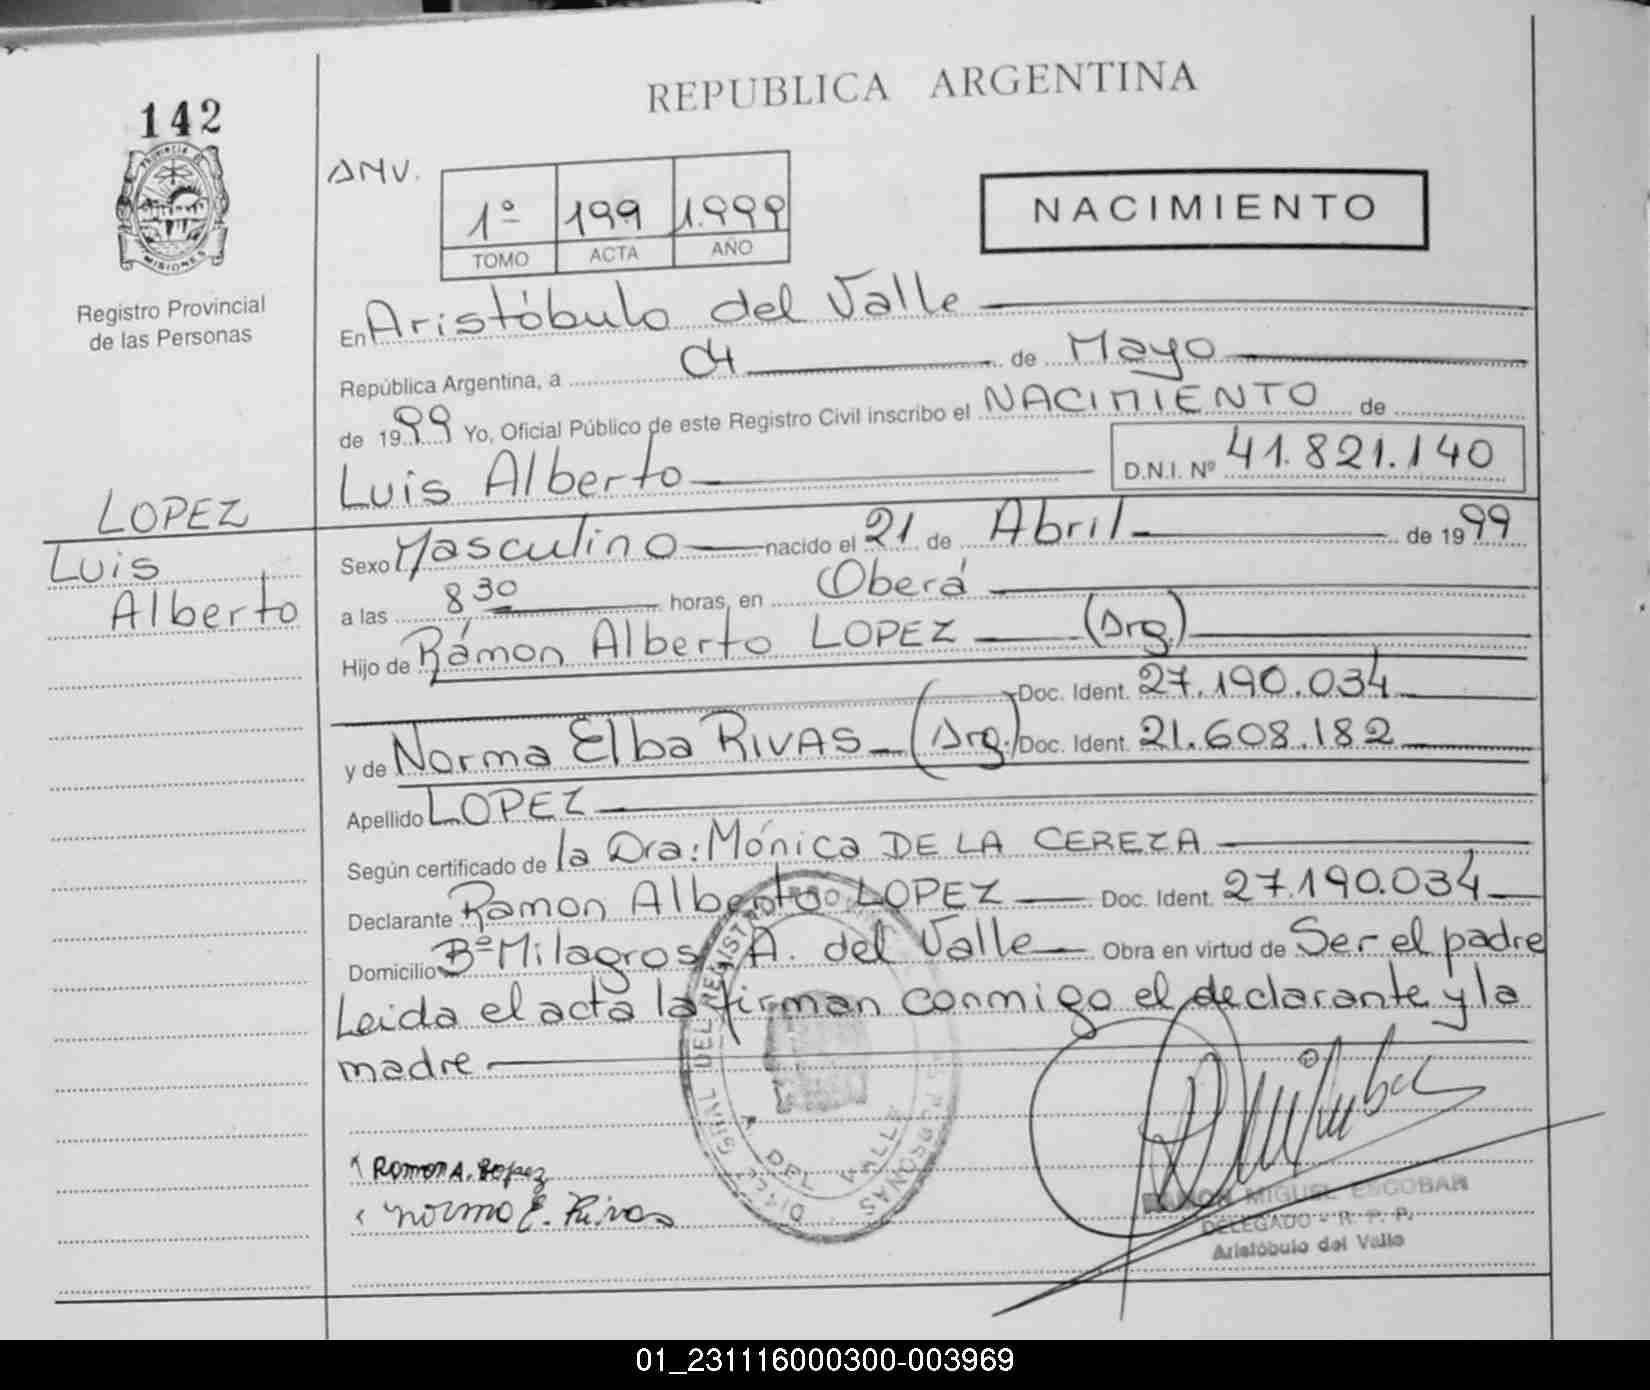 142
REPUBLICA ARGENTINA
PROVINCIA DE
MISIONES
Registro Provincial
de las Personas
ANV.
1º 199 1.999
TOMO ACTA AÑO
NACIMIENTO
En Aristóbulo del Valle
República Argentina, a 04 de Mayo
de 1999 Yo, Oficial Público de este Registro Civil inscribo el NACIMIENTO de
Luis Alberto D.N.I. Nº 41.821.140
LOPEZ
Luis
Alberto
Sexo Masculino nacido el 21 de Abril de 1999
a las 8 30 horas, en Oberá
Hijo de Rámon Alberto LOPEZ (Arg.)
Doc. Ident. 27.190.034
y de Norma Elba RIVAS (Arg.) Doc. Ident. 21.608.182
Apellido LOPEZ
Según certificado de la Dra: Mónica DE LA CEREZA
Declarante Ramon Alberto LOPEZ Doc. Ident. 27.190.034
Domicilio Bº Milagros A. del Valle Obra en virtud de Ser el padre
Leida el acta la firman conmigo el declarante y la
madre
Ramon A. Lopez
Norma E. Rivas
DEL REGISTRO
DEL VALLE
PERSONAS
RAMON MIGUEL ESCOBAR
DELEGADO - R. P. P.
Aristóbulo del Valle
01_231116000300-003969